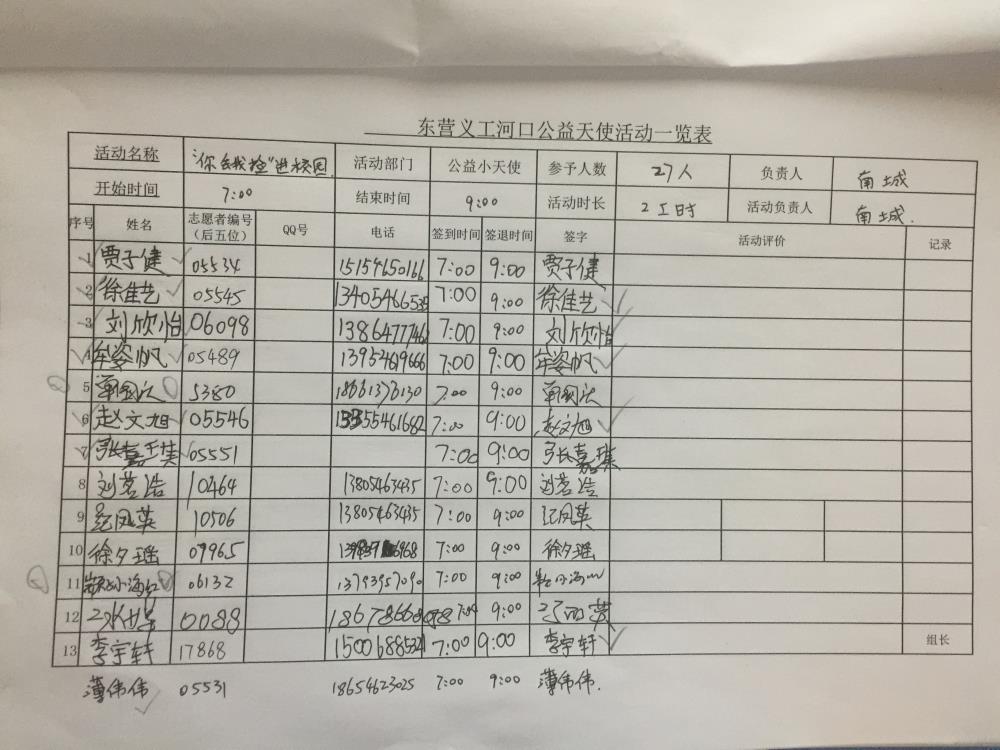 东营义工河口公益天使活动一览表
活动名称 "你我捡"进校园 活动部门 公益小天使 参予人数 27人 负责人 南城
开始时间 7:00 结束时间 9:00 活动时长 2工时 活动负责人 南城.
序号 姓名 志愿者编号（后五位） QQ号 电话 签到时间 签退时间 签字 活动评价 记录
1 贾子健 05534 15154650166 7:00 9:00 贾子健
2 徐佳艺 05545 7:00 9:00 徐佳艺
3 刘欣怡 06098 7:00 9:00 刘欣怡
4 牟姿帆 05489 7:00 9:00 牟姿帆
5 5380 18661376130 7:00 9:00
6 赵文旭 05546 13355461682 7:00 9:00 赵文旭
7 张嘉琪 05551 7:00 9:00 张嘉琪
8 刘茗浩 10464 13805463435 7:00 9:00 刘茗浩
9 纪凤英 10506 13805463435 7:00 9:00 纪凤英
10 徐夕瑶 07965 7:00 9:00 徐夕瑶
11 06132 13793957090 7:00 9:00
12 0088 9:00
13 李宇轩 17868 7:00 9:00 李宇轩 组长
薄伟伟 05531 18654623025 7:00 9:00 薄伟伟.